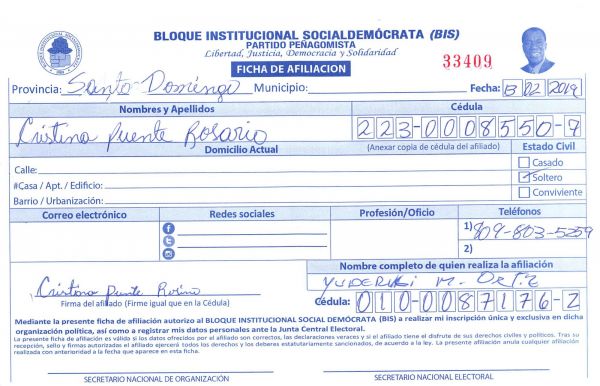 BLOQUE INSTITUCIONAL SOCIALDEMÓCRATA (BIS)
PARTIDO PEÑAGOMISTA
Libertad, Justicia, Democracia y Solidaridad
33409
FICHA DE AFILIACION
Provincia: Santo Domingo Municipio: Fecha: 13 02 2019
Nombres y Apellidos Cédula
Cristina Puente Rosario 223-0008550-7
Domicilio Actual (Anexar copia de cédula del afiliado) Estado Civil
Calle: Casado
#Casa / Apt. / Edificio: Soltero
Barrio / Urbanización: Conviviente
Correo electrónico Redes sociales Profesión/Oficio Teléfonos
1) 809-803-5259
2)
Nombre completo de quien realiza la afiliación
Cristina Puente Rosario Yuderki M. Ortiz
Firma del afiliado (Firme igual que en la Cédula) Cédula: 010-0087176-2
Mediante la presente ficha de afiliación autorizo al BLOQUE INSTITUCIONAL SOCIAL DEMÓCRATA (BIS) a realizar mi inscripción única y exclusiva en dicha
organización política, así como a registrar mis datos personales ante la Junta Central Electoral.
La presente ficha de afiliación es válida si los datos ofrecidos por el afiliado son correctos, las declaraciones veraces y si el afiliado tiene el disfrute de sus derechos civiles y políticos. Tras su
recepción, sello y firmas autorizadas el afiliado ejercerá todos los derechos y los deberas estatutariamente sancionados, de acuerdo a la ley. La presente afiliación anula cualquier afiliación
realizada con anterioridad a la fecha que aparece en esta ficha.
SECRETARIO NACIONAL DE ORGANIZACIÓN SECRETARIO NACIONAL ELECTORAL